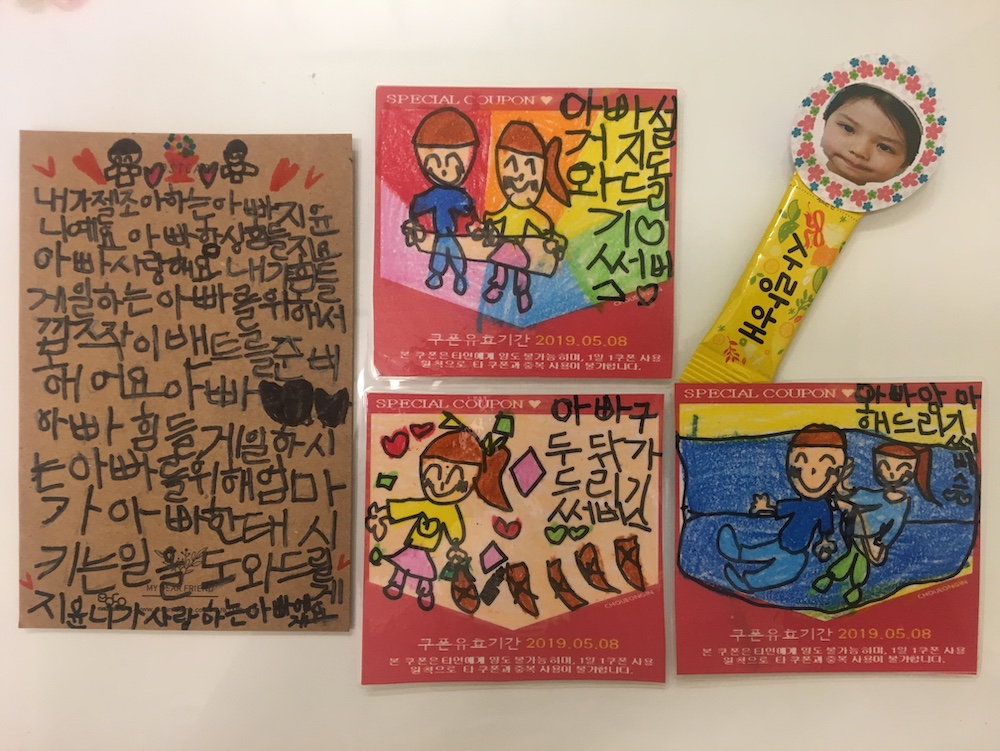 내가젤조아하는아빠지윤
니예요 아빠항상힘들지요
아빠사랑해요 내가힘들
게일하는아빠를위해서
깜즈작이밴드를준비
해어요아빠
아빠힘들게일하시
는아빠를위해엄마
가아빠한태시
키는일을도와드릴게
지윤니가사랑하는아빠
MY DEAR FRIEND
SPECIAL COUPON ♥
아빠설
거지들
와드리
기♡
쿠폰유효기간 2019.05.08
본 쿠폰은 타인에게 양도 불가능하며, 1일 1쿠폰 사용
원칙으로 타 쿠폰과 중복 사용이 불가합니다.
사랑해요
SPECIAL COUPON ♥
아빠구
두닦가
드리기
CHOIJEONGIN
쿠폰유효기간 2019.05.08
본 쿠폰은 타인에게 양도 가능하며, 1일 1쿠폰 사용
원칙으로 타 쿠폰과 중복 사용이 불가합니다.
SPECIAL COUPON ♥
아빠안마
해드리기
CHOIJEONGIN
쿠폰유효기간 2019.05.08
본 쿠폰은 타인에게 양도 불가능하며, 1일 1쿠폰 사용
원칙으로 타 쿠폰과 중복 사용이 불가합니다.